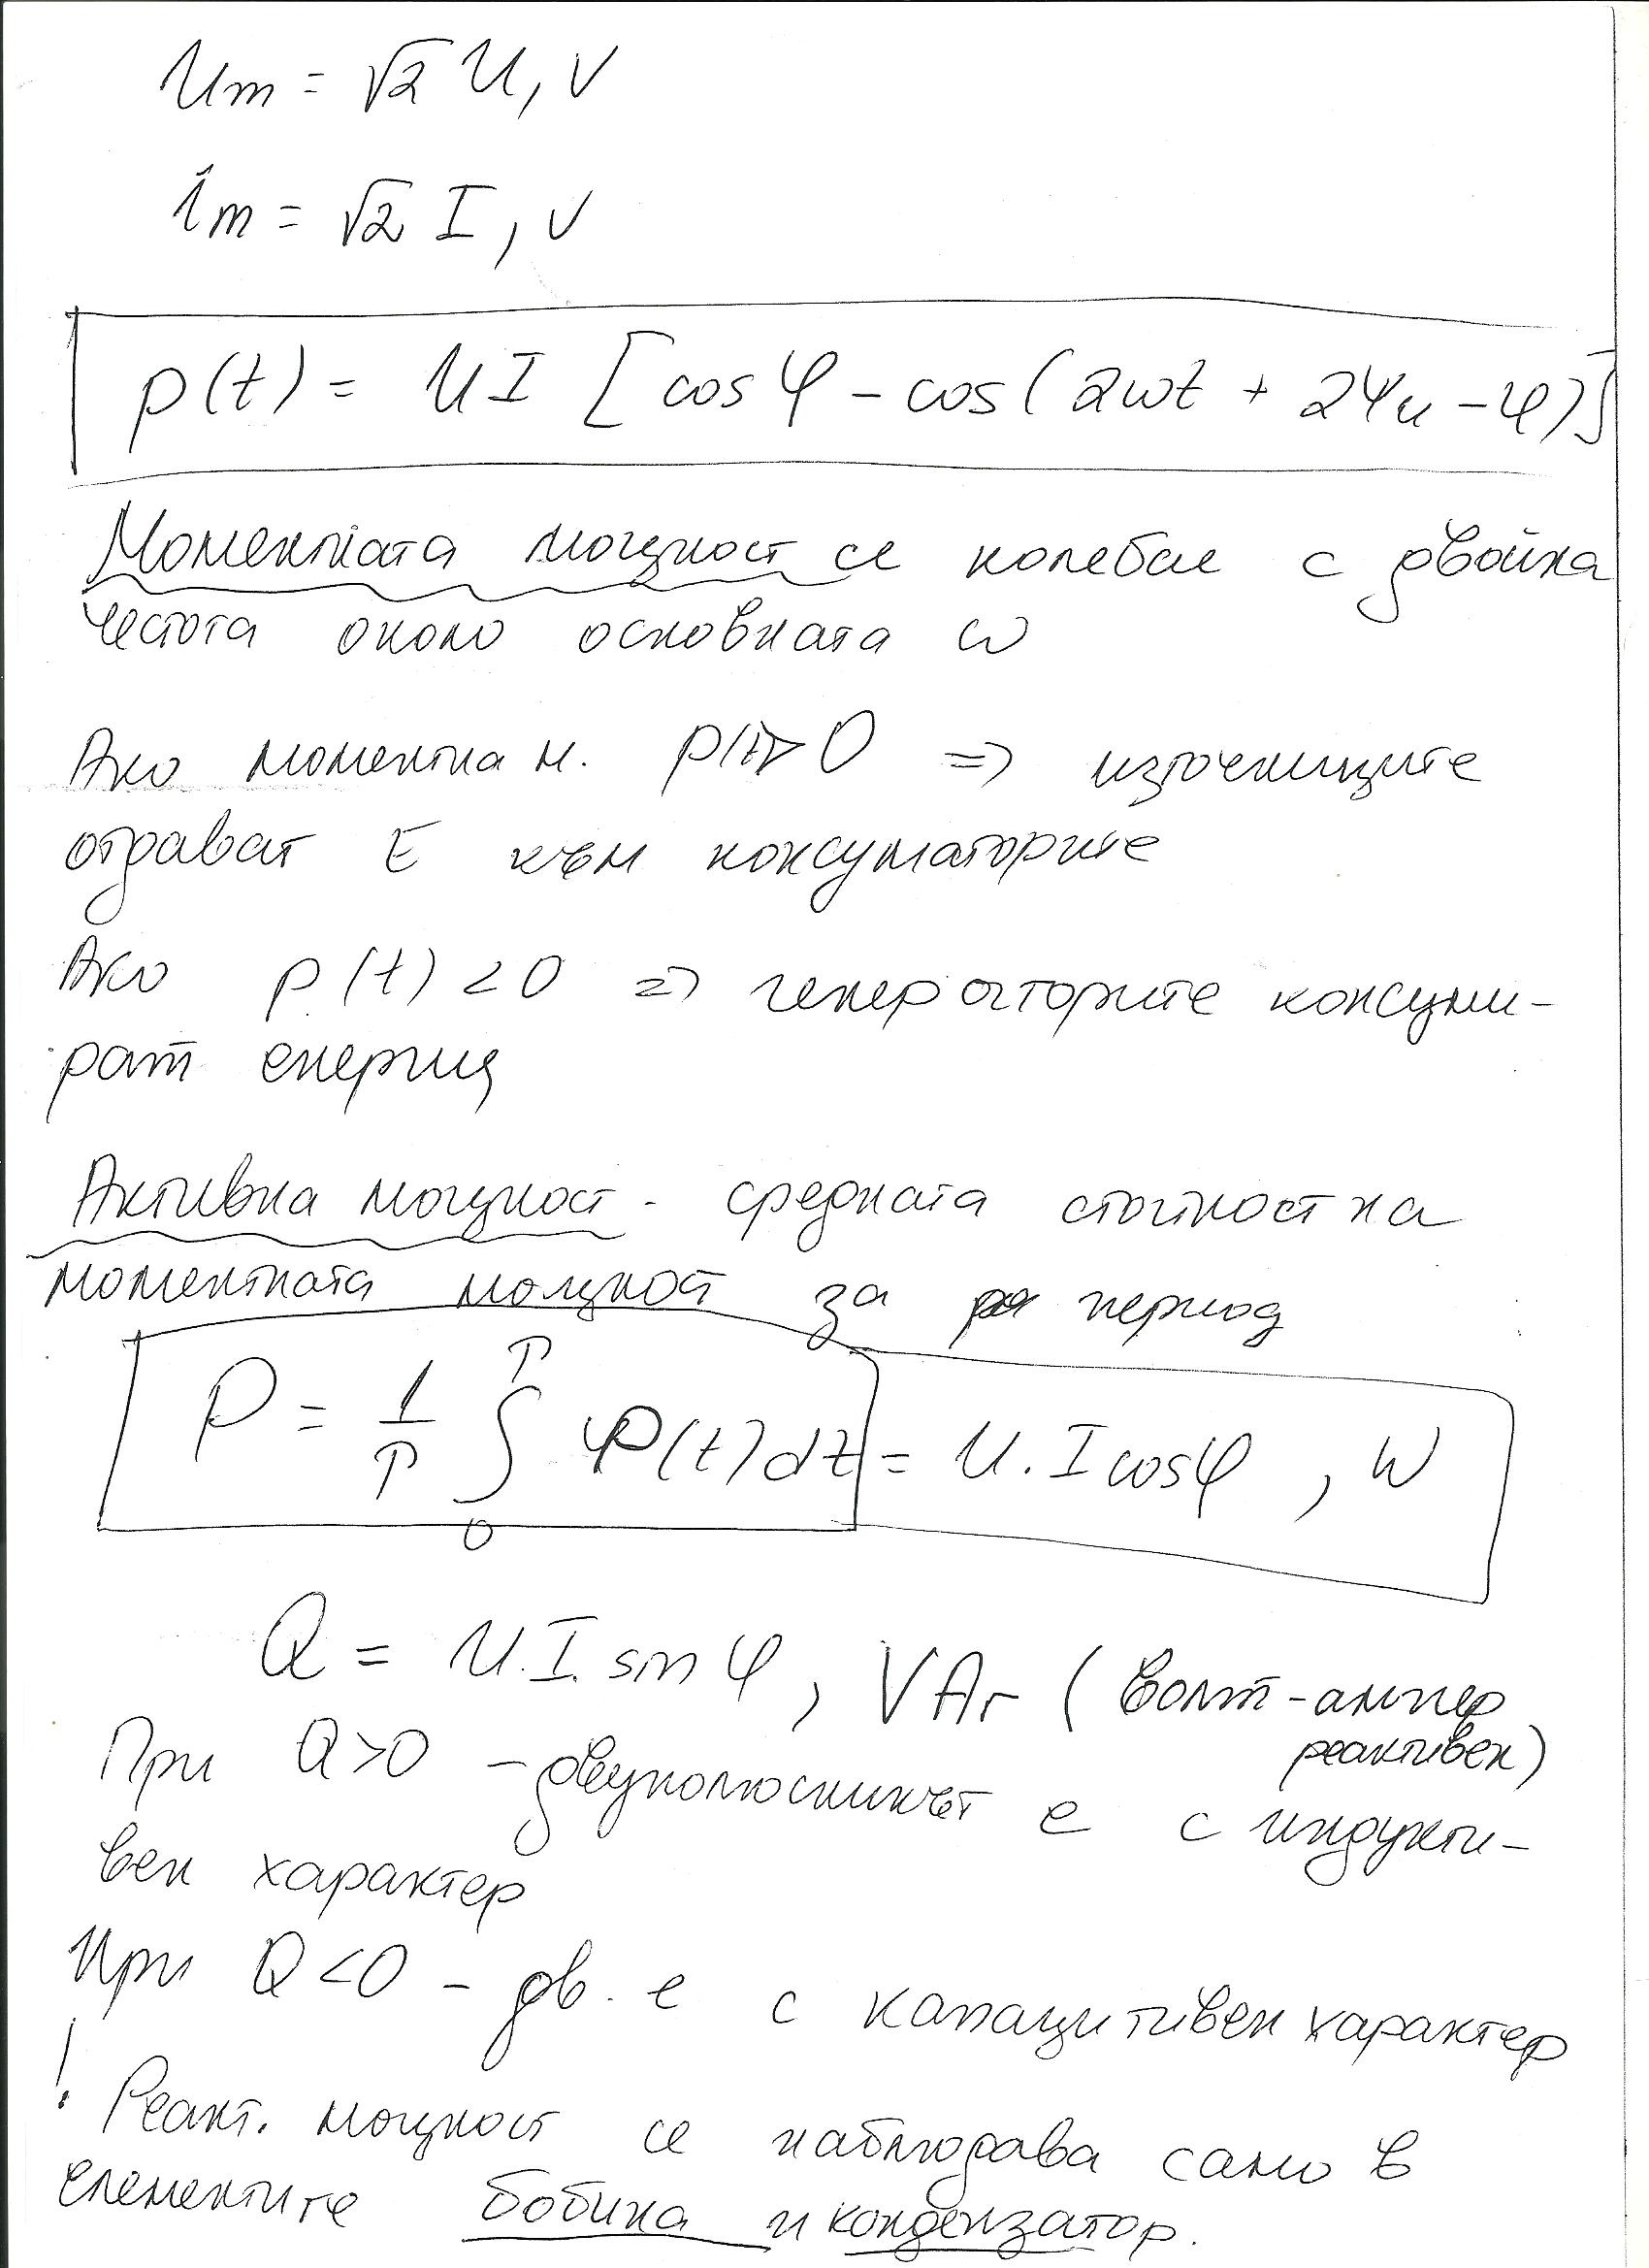 Um = √2 U, V
im = √2 I, V
p(t) = UI [cosφ - cos(2ωt + 2Ψu - φ)]
Моментната мощност се колебае с двойна
честота около основната ω
Ако моментна м. p(t)>0 => източниците
отдават E към консуматорите
Ако p(t)<0 => генераторите консуми-
рат енергия
Активна мощност - средната стойност на
моментната мощност за период
P = 1/T ∫₀ᵀ p(t)dt = U.I cosφ , W
Q = U.I. sinφ , VAr (волт-ампер
реактивен)
При Q>0 - двуполюсникът е с индукти-
вен характер
При Q<0 - дв. е с капацитивен характер
! Реакт. мощност се наблюдава само в
елементите бобина и кондензатор.